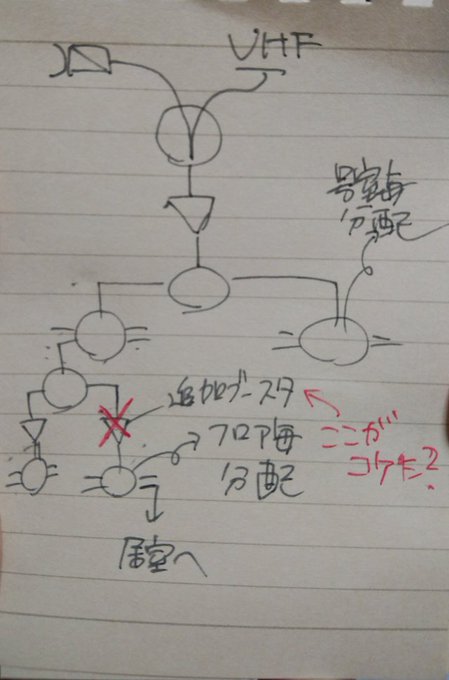 VHF
号室毎
分配
追加ブースタ
フロア毎
分配
ここが
コケた?
居室へ